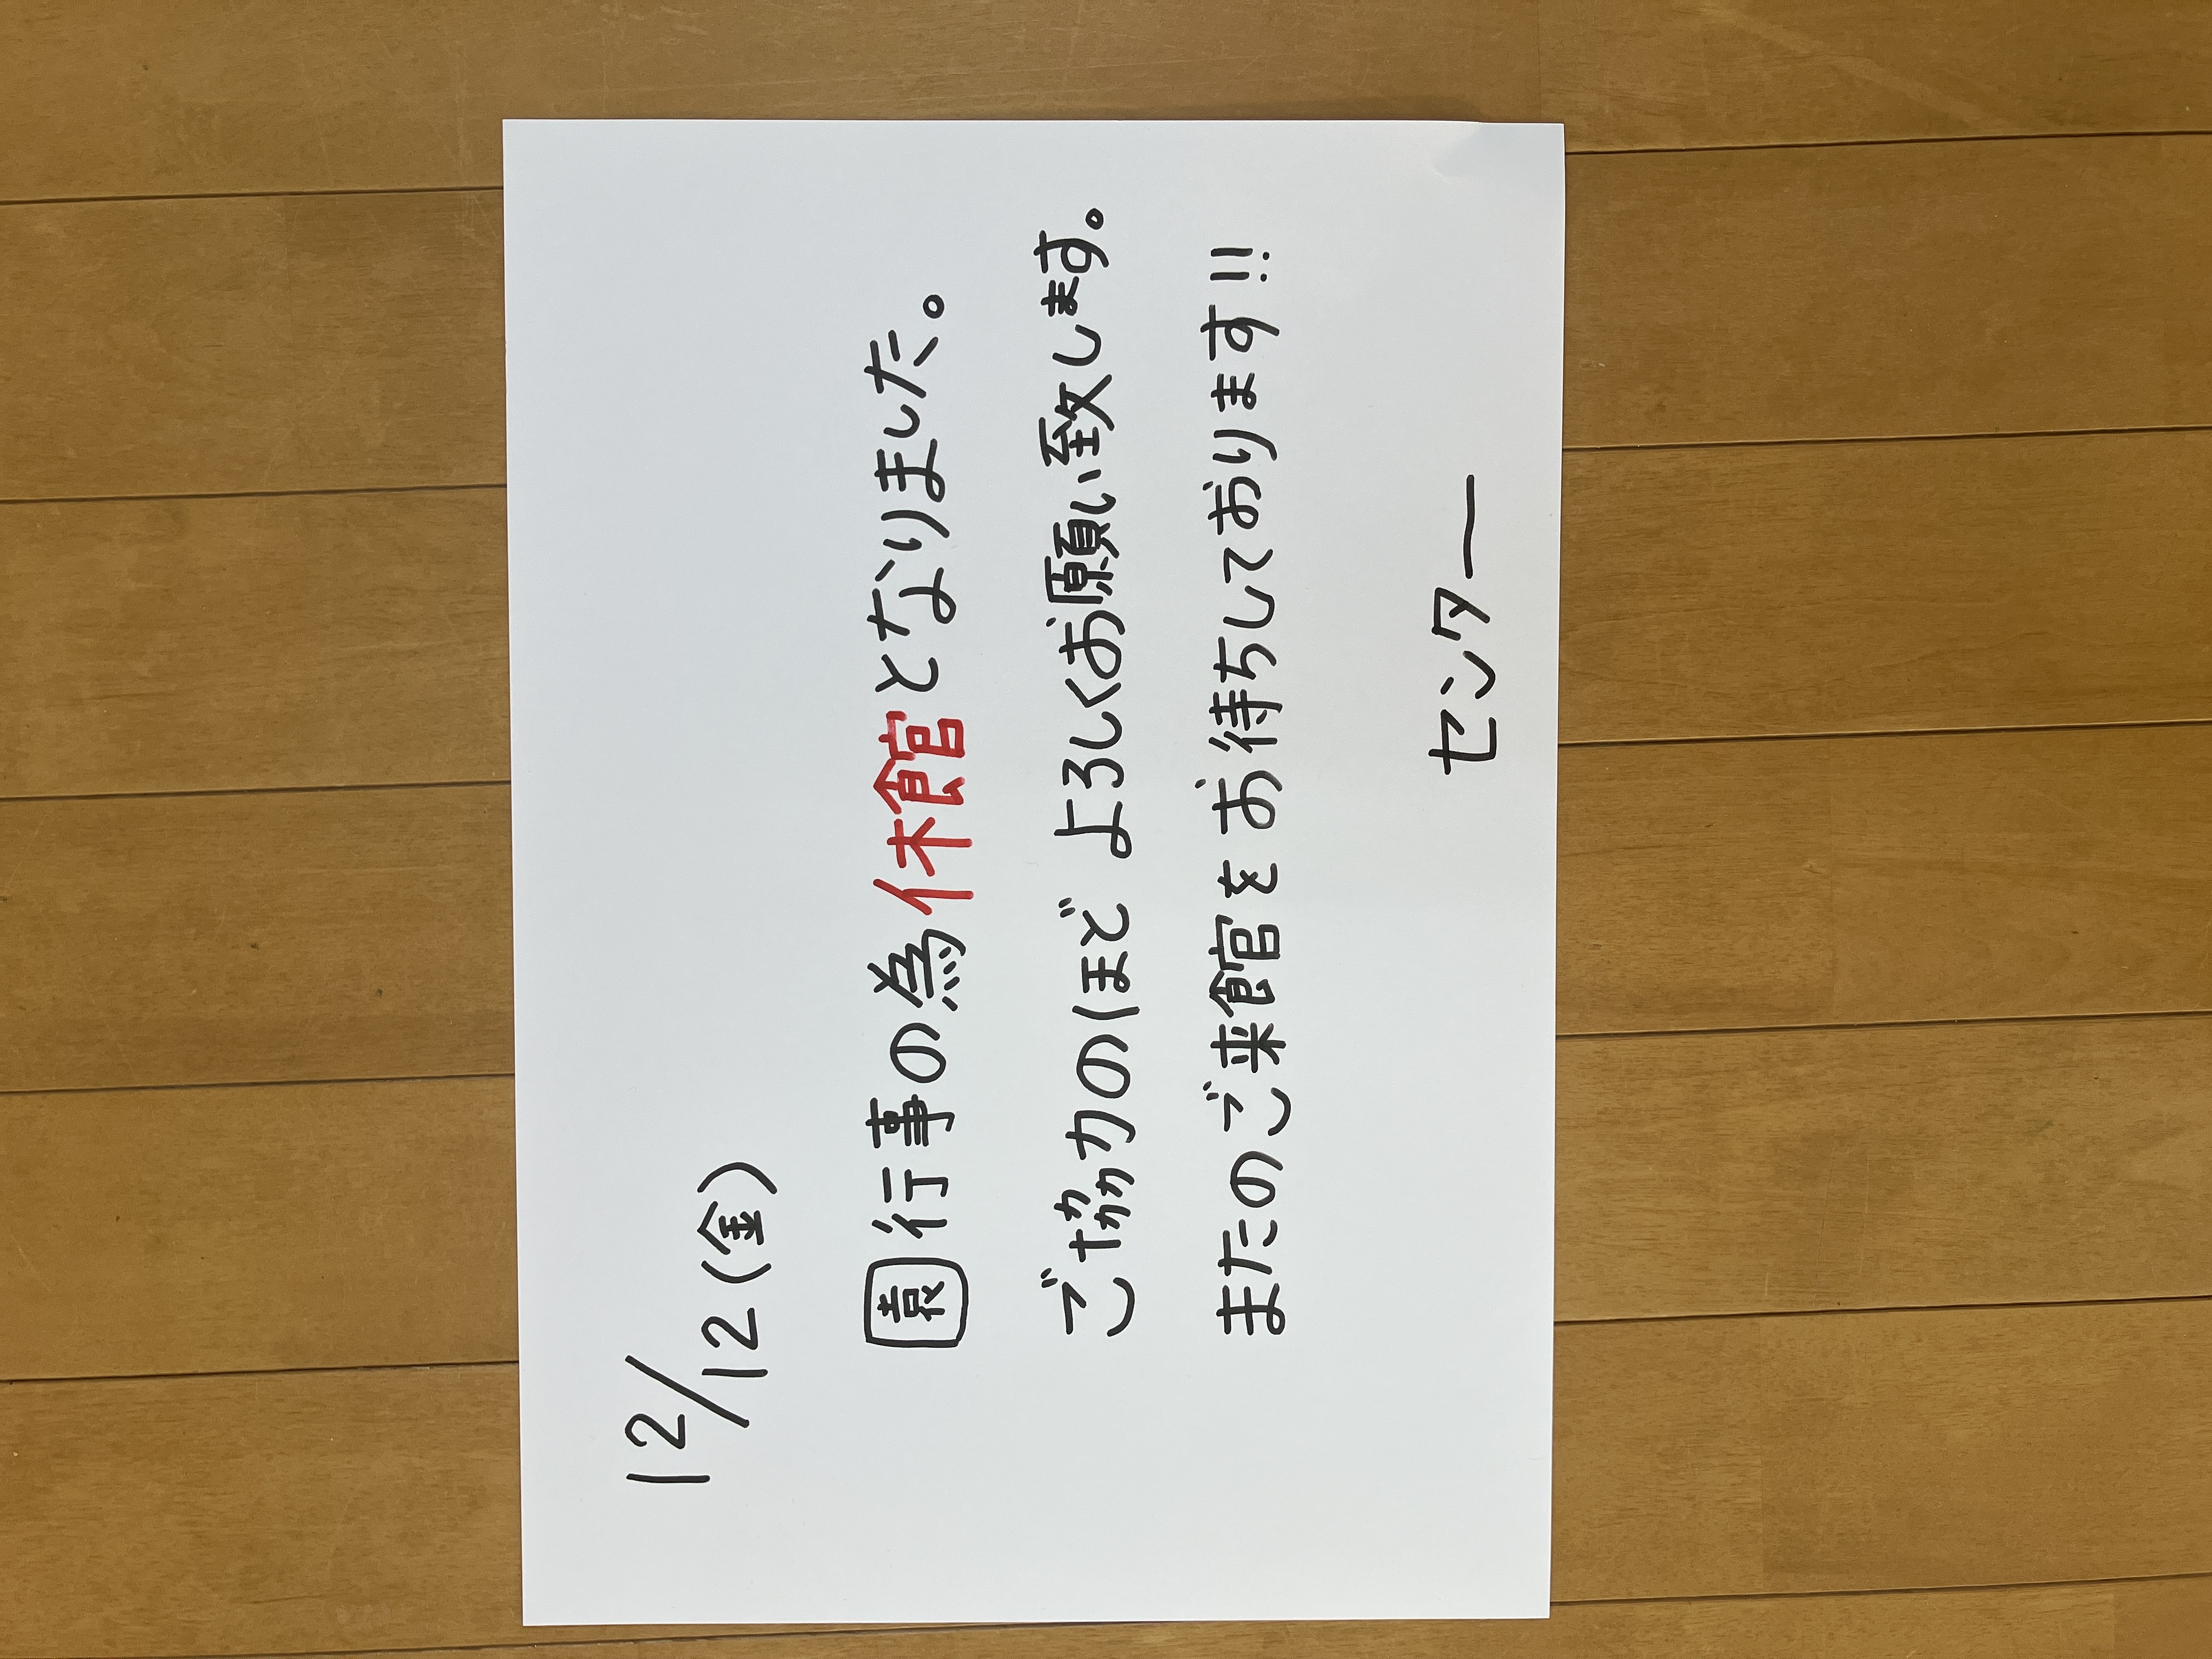 12/12(金)
園行事の為休館となりました。
ご協力のほど よろしくお願い致します。
またのご来館をお待ちしております!!
センター